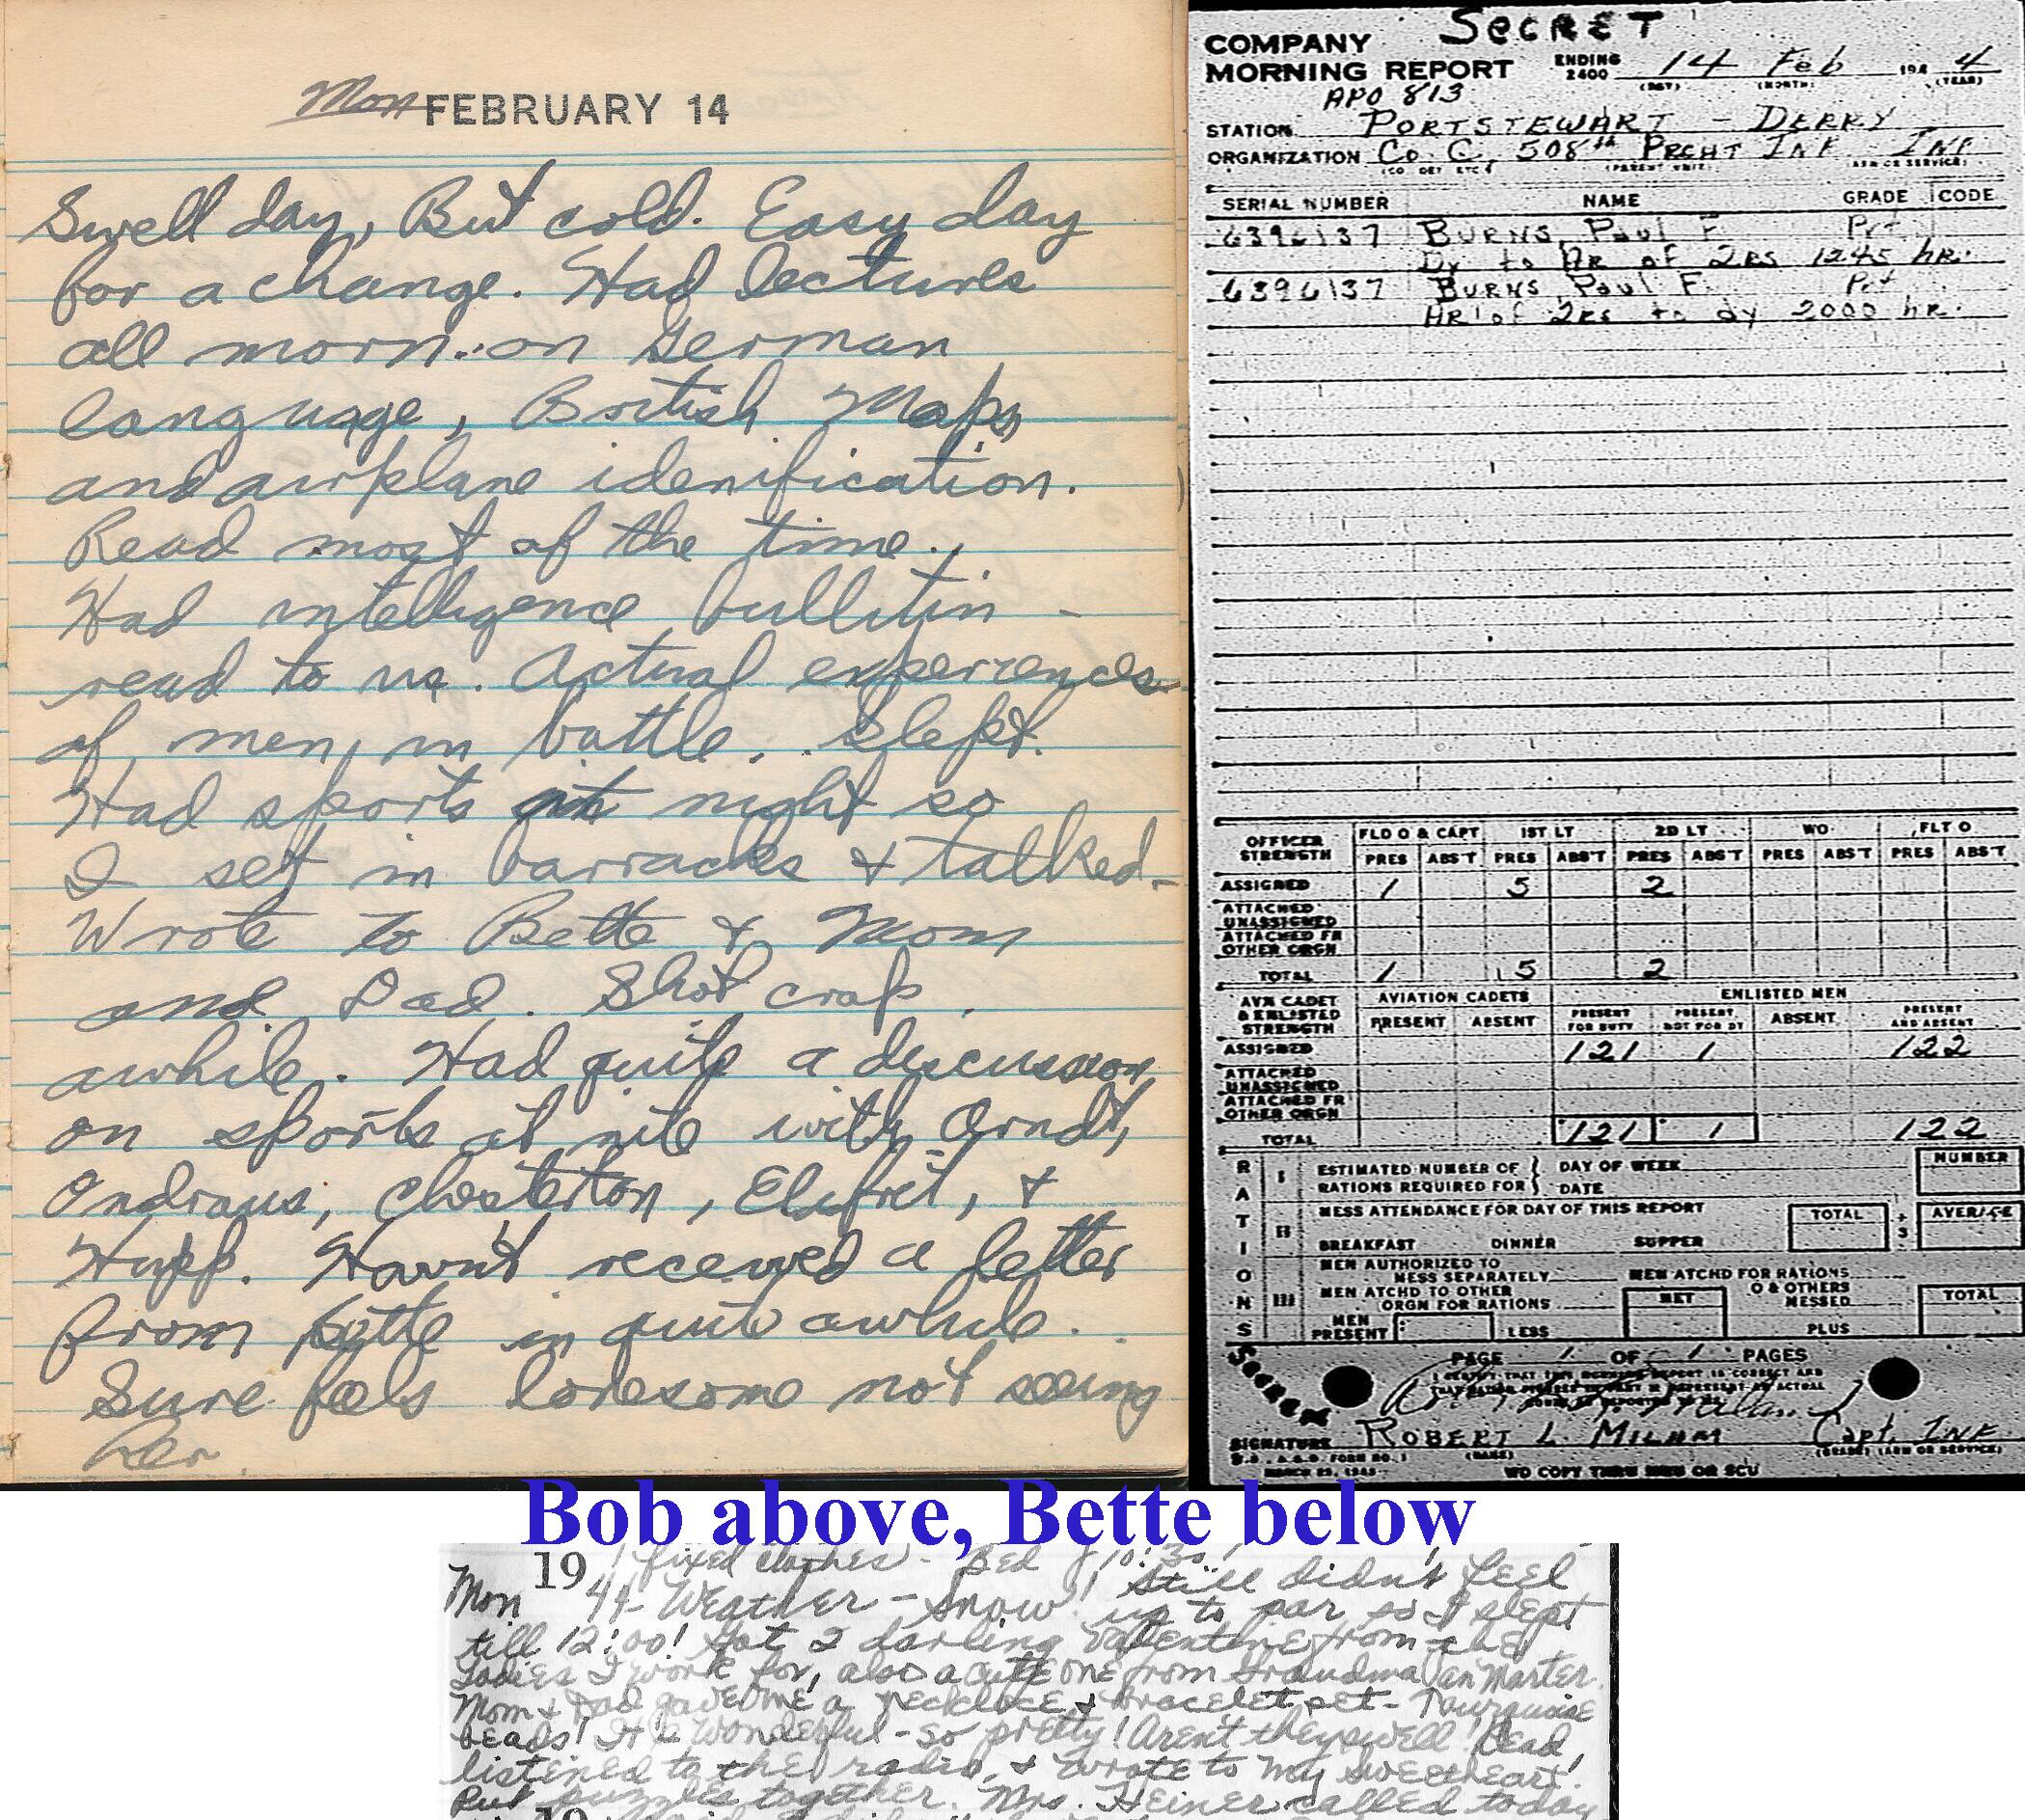 Mon FEBRUARY 14
Swell day, But cold. Easy day
for a change. Had lectures
all morn. on German
language, British Maps
and airplane idenification.
Read most of the time.
Had intelligence bullitin -
read to us. Actual experiences
of men in battle. Slept.
Had sports at night so
I set in barracks & talked -
Wrote to Bette & Mom
and Dad. Shot crap
awhile. Had quite a discussion
on sports at nite with Arndt,
Ondraus, Chesterton, Elufret, &
Hupp. Havn't received a letter
from Bette in quite awhile.
Sure feels lonesome not seeing
her
SECRET
COMPANY
MORNING REPORT ENDING 2400 14 Feb 1944
(DAY) (MONTH) (YEAR)
APO 813
STATION PORTSTEWART - DERRY
ORGANIZATION Co. C, 508th PRCHT INF INF
(CO DET ETC) (PARENT UNIT) (ARM OR SERVICE)
SERIAL NUMBER NAME GRADE CODE
6396137 BURNS, Paul F. Pvt
Dy to Ar of 2rs 1245 hr.
6396137 BURNS Paul F. Pvt
Ar of 2rs to dy 2000 hr.
OFFICER STRENGTH FLD O & CAPT 1ST LT 2D LT WO FLT O
PRES ABS'T PRES ABS'T PRES ABS'T PRES ABS'T PRES ABS'T
ASSIGNED 1 5 2
ATTACHED UNASSIGNED
ATTACHED FR OTHER ORGN
TOTAL 1 5 2
AVN CADET & ENLISTED STRENGTH AVIATION CADETS ENLISTED MEN
PRESENT ABSENT PRESENT FOR DUTY PRESENT NOT FOR DY ABSENT PRESENT AND ABSENT
ASSIGNED 121 1 122
ATTACHED UNASSIGNED
ATTACHED FR OTHER ORGN
TOTAL 121 1 122
RATIONS
I ESTIMATED NUMBER OF RATIONS REQUIRED FOR DAY OF WEEK DATE NUMBER
II MESS ATTENDANCE FOR DAY OF THIS REPORT TOTAL ÷ 3 AVERAGE
BREAKFAST DINNER SUPPER
III MEN AUTHORIZED TO MESS SEPARATELY MEN ATCHD FOR RATIONS
MEN ATCHD TO OTHER ORGN FOR RATIONS NET O & OTHERS MESSED TOTAL
MEN PRESENT LESS PLUS
PAGE 1 OF 1 PAGES
I CERTIFY THAT THIS MORNING REPORT IS CORRECT AND
Secret
SIGNATURE ROBERT L. MILHAM Capt. INF
(NAME) (GRADE) (ARM OR SERVICE)
W.D., A.G.O. FORM NO. 1
MARCH 23, 1943
WD COPY THRU MRU OR SCU
Bob above, Bette below
19 fixed clothes - Bed 10:30!
Mon 44 - Weather - Snow! Still didn't feel
up to par so I slept
till 12:00! Got 2 darling Valentine from the
ladies I work for, also a cute one from Grandma Van Marter.
Mom & Dad gave me a necklace & bracelet set - Tourquoise
beads! It is wonderful - so pretty! Aren't they swell! Read,
listened to the radio, & wrote to my sweetheart!
Put puzzles together. Mrs. Heiner called today
19